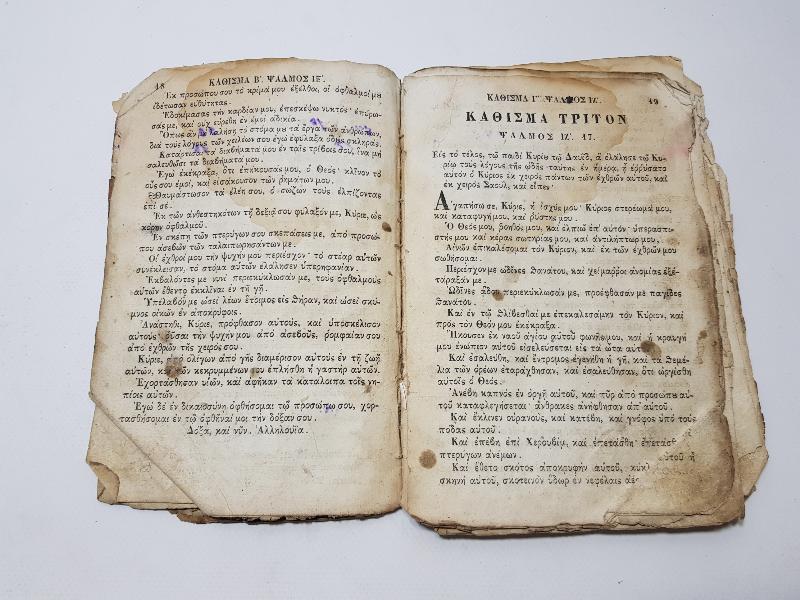 18
ΚΑΘΙΣΜΑ Β΄. ΨΑΛΜΟΣ ΙϚ΄.
Ἐκ προσώπου σου τὸ κρίμά μου ἐξέλθοι, οἱ ὀφθαλμοί μου
ἰδέτωσαν εὐθύτητας.
Ἐδοκίμασας τὴν καρδίαν μου, ἐπεσκέψω νυκτός· ἐπύρω-
σάς με, καὶ οὐχ εὑρέθη ἐν ἐμοὶ ἀδικία.
Ὅπως ἂν λαλήσῃ τὸ στόμα με τὰ ἔργα τῶν ἀνθρώπων,
διὰ τοὺς λόγους τῶν χειλέων σου ἐγὼ ἐφύλαξα ὁδοὺς σκληράς.
Κατάρτισαι τὰ διαβήματά μου ἐν ταῖς τρίβοις σου, ἵνα μὴ
σαλευθῶσι τὰ διαβήματά μου.
Ἐγὼ ἐκέκραξα, ὅτι ἐπήκουσάς μου, ὁ Θεός· κλῖνον τὸ
οὖς σου ἐμοί, καὶ εἰσάκουσον τῶν ῥημάτων μου.
Θαυμάστωσον τὰ ἐλέη σου, ὁ σώζων τοὺς ἐλπίζοντας
ἐπὶ σέ.
Ἐκ τῶν ἀνθεστηκότων τῇ δεξιᾷ σου φύλαξόν με, Κύριε, ὡς
κόρην ὀφθαλμοῦ.
Ἐν σκέπῃ τῶν πτερύγων σου σκεπάσεις με, ἀπὸ προσώ-
που ἀσεβῶν τῶν ταλαιπωρησάντων με.
Οἱ ἐχθροί μου τὴν ψυχήν μου περιέσχον· τὸ στέαρ αὐτῶν
συνέκλεισαν, τὸ στόμα αὐτῶν ἐλάλησεν ὑπερηφανίαν.
Ἐκβαλόντες με νυνὶ περιεκύκλωσάν με, τοὺς ὀφθαλμοὺς
αὐτῶν ἔθεντο ἐκκλῖναι ἐν τῇ γῇ.
Ὑπέλαβόν με ὡσεὶ λέων ἕτοιμος εἰς θήραν, καὶ ὡσεὶ σκύ-
μνος οἰκῶν ἐν ἀποκρύφοις.
Ἀνάστηθι, Κύριε, πρόφθασον αὐτούς, καὶ ὑποσκέλισον
αὐτούς· ῥῦσαι τὴν ψυχήν μου ἀπὸ ἀσεβοῦς, ῥομφαίαν σου
ἀπὸ ἐχθρῶν τῆς χειρός σου.
Κύριε, ἀπὸ ὀλίγων ἀπὸ γῆς διαμέρισον αὐτοὺς ἐν τῇ ζωῇ
αὐτῶν, καὶ τῶν κεκρυμμένων σου ἐπλήσθη ἡ γαστὴρ αὐτῶν.
Ἐχορτάσθησαν υἱῶν, καὶ ἀφῆκαν τὰ κατάλοιπα τοῖς νη-
πίοις αὐτῶν.
Ἐγὼ δὲ ἐν δικαιοσύνῃ ὀφθήσομαι τῷ προσώπῳ σου, χορ-
τασθήσομαι ἐν τῷ ὀφθῆναί μοι τὴν δόξαν σου.
Δόξα, καὶ νῦν. Ἀλληλούϊα.
ΚΑΘΙΣΜΑ Γ΄. ΨΑΛΜΟΣ ΙΖ΄.
19
ΚΑΘΙΣΜΑ ΤΡΙΤΟΝ
ΨΑΛΜΟΣ ΙΖ΄. 17.
Εἰς τὸ τέλος, τῷ παιδὶ Κυρίου τῷ Δαυῒδ, ἃ ἐλάλησε τῷ Κυ-
ρίῳ τοὺς λόγους τῆς ᾠδῆς ταύτης ἐν ἡμέρᾳ, ᾗ ἐῤῥύσατο
αὐτὸν ὁ Κύριος ἐκ χειρὸς πάντων τῶν ἐχθρῶν αὐτοῦ, καὶ
ἐκ χειρὸς Σαούλ, καὶ εἶπεν·
Ἀγαπήσω σε, Κύριε, ἡ ἰσχύς μου· Κύριος στερέωμά μου,
καὶ καταφυγή μου, καὶ ῥύστης μου.
Ὁ Θεός μου, βοηθός μου, καὶ ἐλπιῶ ἐπ' αὐτόν· ὑπερασπι-
στής μου καὶ κέρας σωτηρίας μου, καὶ ἀντιλήπτωρ μου.
Αἰνῶν ἐπικαλέσομαι τὸν Κύριον, καὶ ἐκ τῶν ἐχθρῶν μου
σωθήσομαι.
Περιέσχον με ὠδῖνες θανάτου, καὶ χείμαῤῥοι ἀνομίας ἐξε-
τάραξάν με.
Ὠδῖνες ᾅδου περιεκύκλωσάν με, προέφθασάν με παγίδες
θανάτου.
Καὶ ἐν τῷ θλίβεσθαί με ἐπεκαλεσάμην τὸν Κύριον, καὶ
πρὸς τὸν Θεόν μου ἐκέκραξα.
Ἤκουσεν ἐκ ναοῦ ἁγίου αὐτοῦ φωνῆς μου, καὶ ἡ κραυγή
μου ἐνώπιον αὐτοῦ εἰσελεύσεται εἰς τὰ ὦτα αὐτοῦ.
Καὶ ἐσαλεύθη, καὶ ἔντρομος ἐγενήθη ἡ γῆ, καὶ τὰ θεμέ-
λια τῶν ὀρέων ἐταράχθησαν, καὶ ἐσαλεύθησαν, ὅτι ὠργίσθη
αὐτοῖς ὁ Θεός.
Ἀνέβη καπνὸς ἐν ὀργῇ αὐτοῦ, καὶ πῦρ ἀπὸ προσώπου αὐ-
τοῦ καταφλεγήσεται· ἄνθρακες ἀνήφθησαν ἀπ' αὐτοῦ.
Καὶ ἔκλινεν οὐρανούς, καὶ κατέβη, καὶ γνόφος ὑπὸ τοὺς
πόδας αὐτοῦ.
Καὶ ἐπέβη ἐπὶ Χερουβίμ, καὶ ἐπετάσθη· ἐπετάσθ
πτερύγων ἀνέμων.
Καὶ ἔθετο σκότος ἀποκρυφὴν αὐτοῦ, κύκλ
σκηνὴ αὐτοῦ, σκοτεινὸν ὕδωρ ἐν νεφέλαις ἀέ